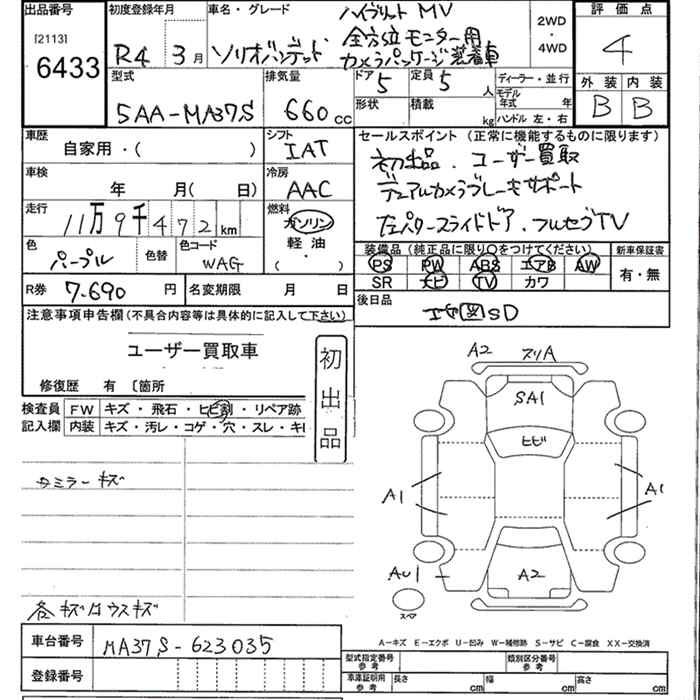 出品番号
[2113]
6433
初度登録年月
R4 3月
車名・グレード
ハイブリット MV
ソリオバンデット 全方位モニター用
カメラパッケージ装着車
2WD
・
4WD
評価点
4
外装 内装
B B
型式
5AA-MA37S
排気量
660cc
ドア 5
定員 5人
形状
積載 kg
ディーラー・並行
モデル年式 年
ハンドル 左・右
車歴
自家用・( )
シフト
IAT
セールスポイント (正常に機能するものに限ります)
初出品.ユーザー買取
デュアルカメラブレーキサポート
左パワースライドドア.フルセグTV
車検
年 月( 日)
冷房
AAC
走行
11万9千472km
燃料
ガソリン
軽油
・( )
色
パープル
色替
色コード
WAG
装備品 (純正品に限り○をつけてください)
PS PW ABS エアB AW
SR ナビ TV カワ
新車保証書
有・無
R券 7.690円
名変期限 月 日
後日品
取図SD
注意事項申告欄(不具合内容等は具体的に記入して下さい)
ユーザー買取車
修復歴 有 〔箇所
初出品
検査員記入欄
FW キズ・飛石・ヒビ割・リペア跡
内装 キズ・汚レ・コゲ・穴・スレ・キレ
タミラーキズ
各キズ
A2 スリA
SA1
ヒビ
A1
A1
AU1
A2
スペア
A-キズ E-エクボ U-凹み W-補修跡 S-サビ C-腐食 XX-交換済
車台番号 MA37S-623035
登録番号
型式指定番号 参考
類別区分番号 参考
車庫証明用 参考
長さ cm
幅 cm
高さ cm